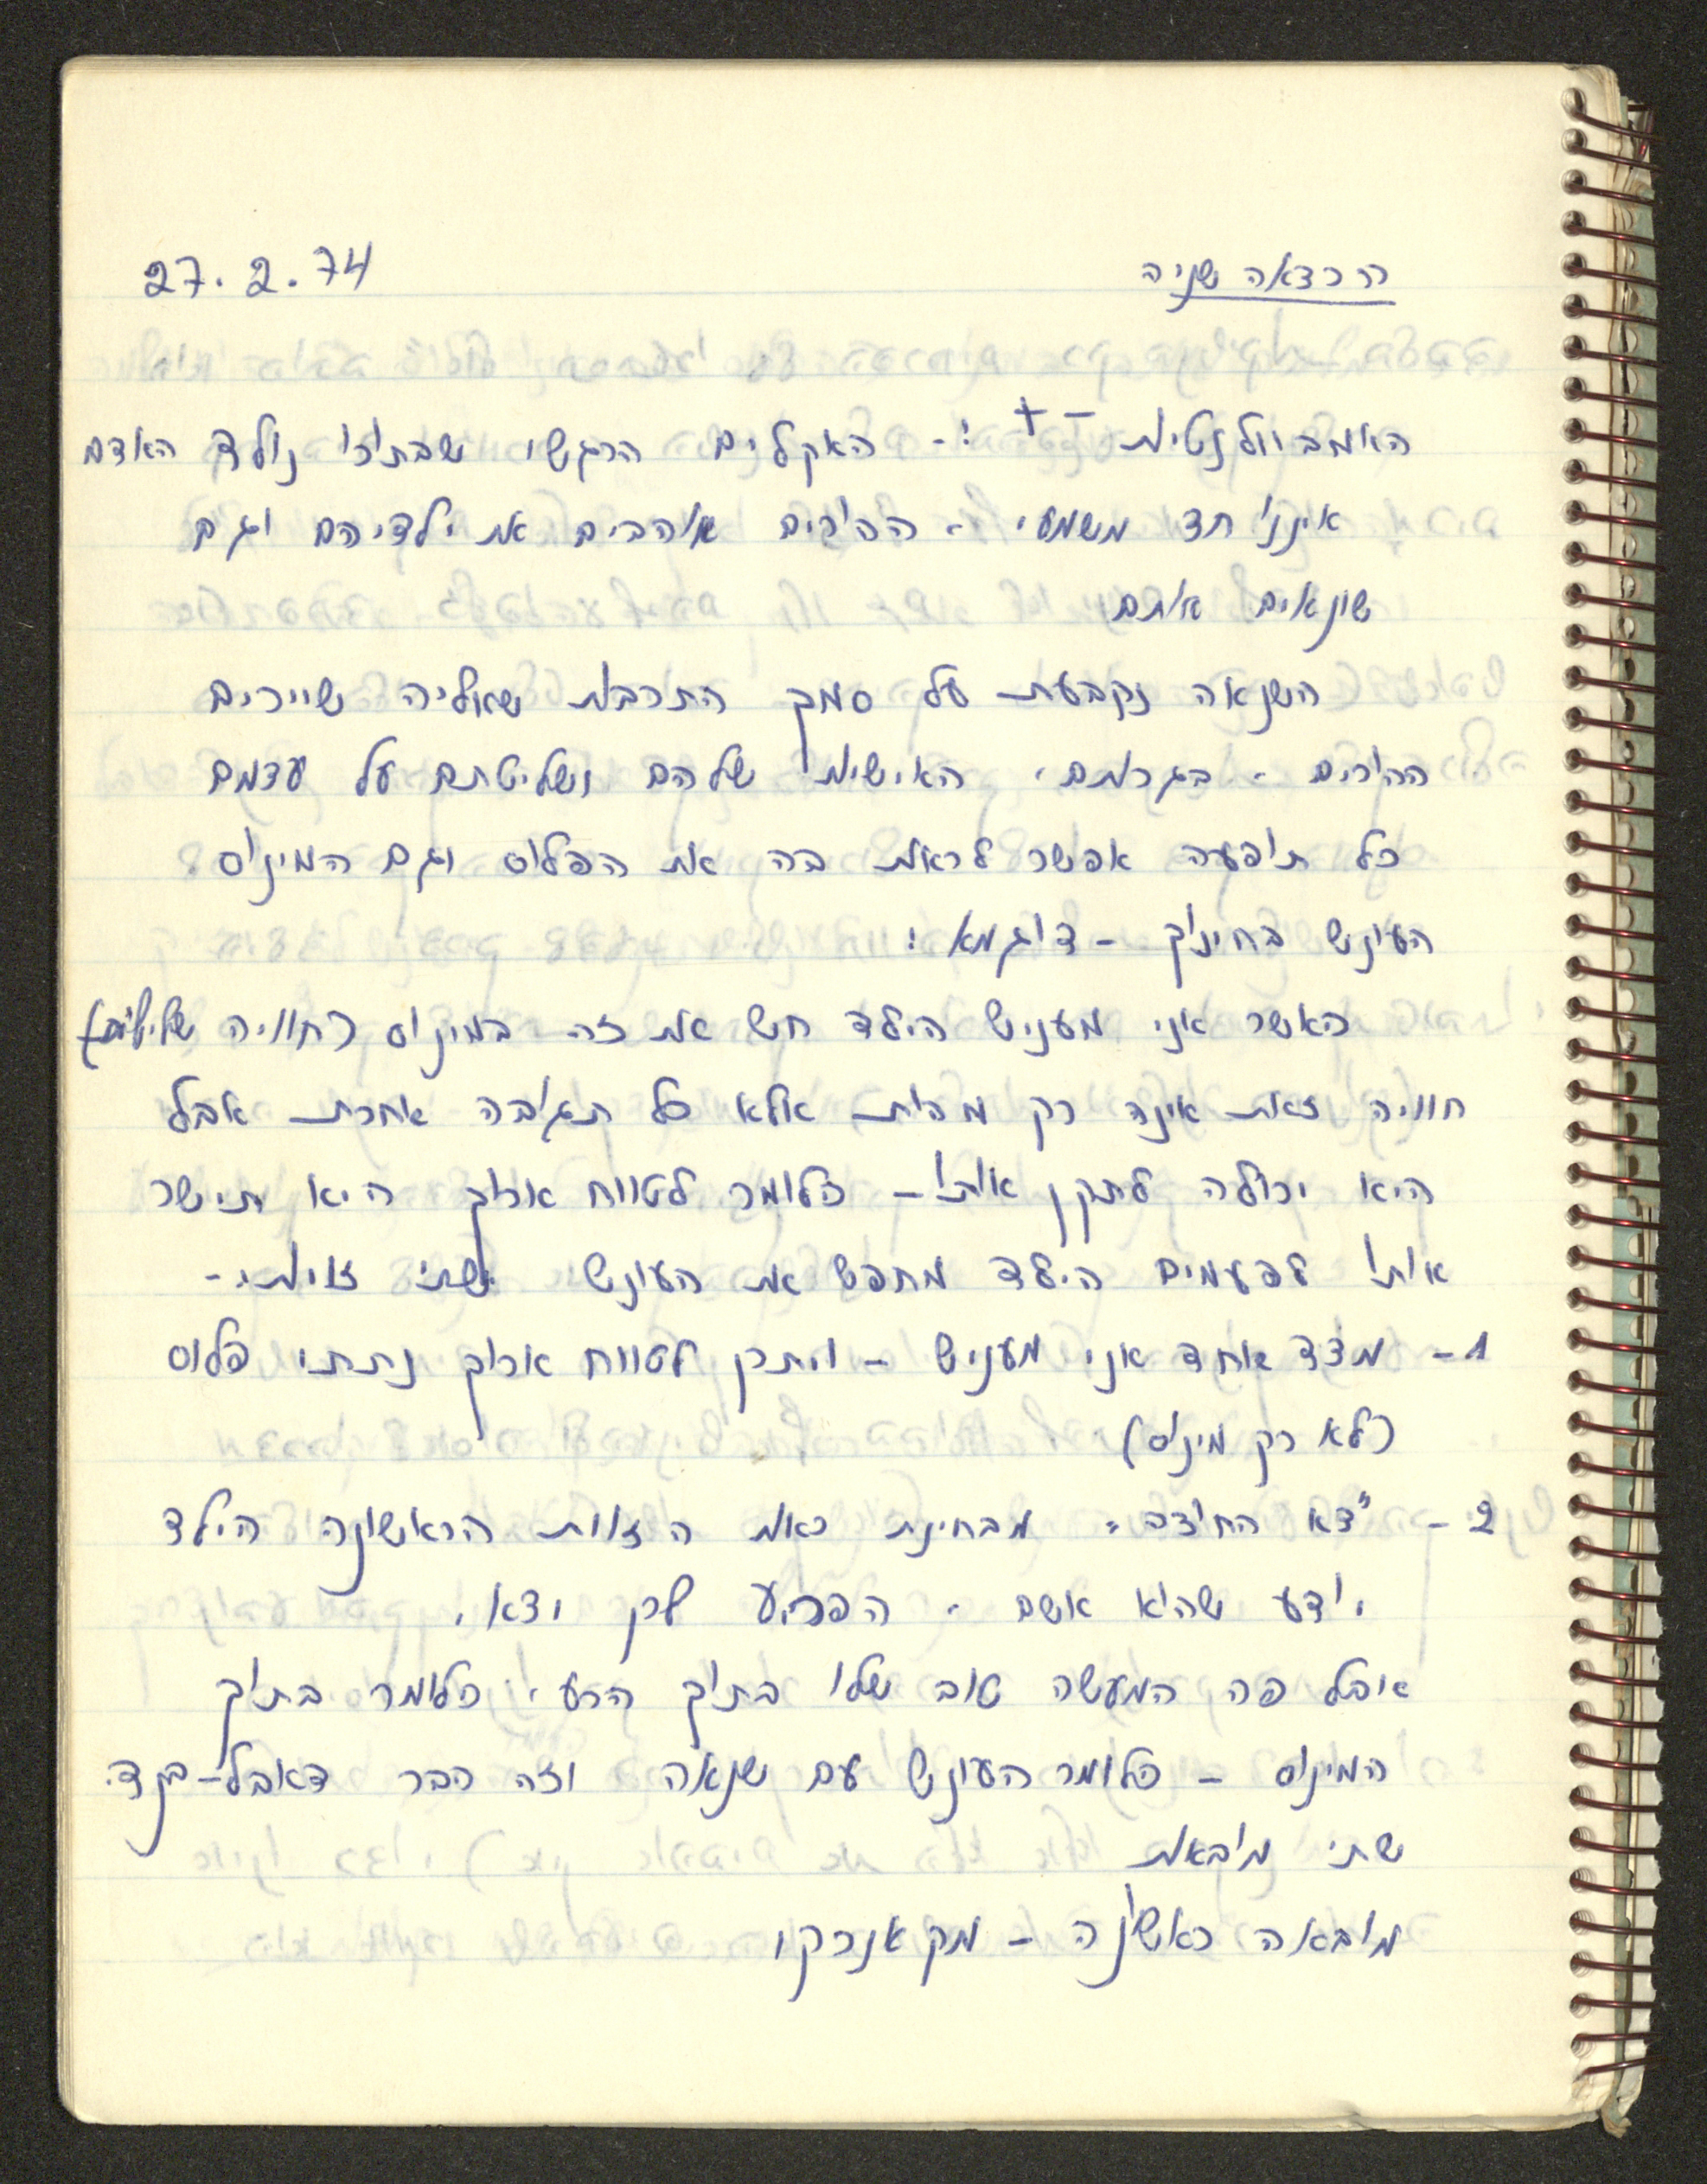 הרצאה שניה 27.2.74
האמביוולנטיות - + :- האקלים הרגשי שבתוכו נולד האדם
איננו חד משמעי - ההורים אוהבים את ילדיהם וגם
שונאים אותם
השנאה נקבעת על סמך התרבות שאליה שייכים
ההורים - בגרותם, האישיות שלהם ושליטתם על עצמם
כל תופעה אפשר לראות בה את הפלוס וגם המינוס.
העונש בחינוך - דוגמא:
כאשר אני מעניש הילד חש את זה במינוס (חוויה שלילית)
חוויה זאת אינה רק מכות אלא כל תגובה אחרת אבל
היא יכולה לתקן אותו - כלומר לטווח ארוך היא תישר
אותו לפעמים הילד מחפש את העונש שתי זויות -
1 - מצד אחד אני מעניש - ויתכן לטווח ארוך נתתי פלוס
(לא רק מינוס)
2 - "צא החוצה" מבחינת ראות הזוית הראשונה הילד
יודע שהוא אשם - הפריע לכן יצא.
אבל פה המעשה טוב שלו בתוך הרע, כלומר בתוך
המינוס - כלומר העונש עם שנאה וזה כבר דאבל-בינד.
שתי מובאות
מובאה ראשונה - מקארנקו